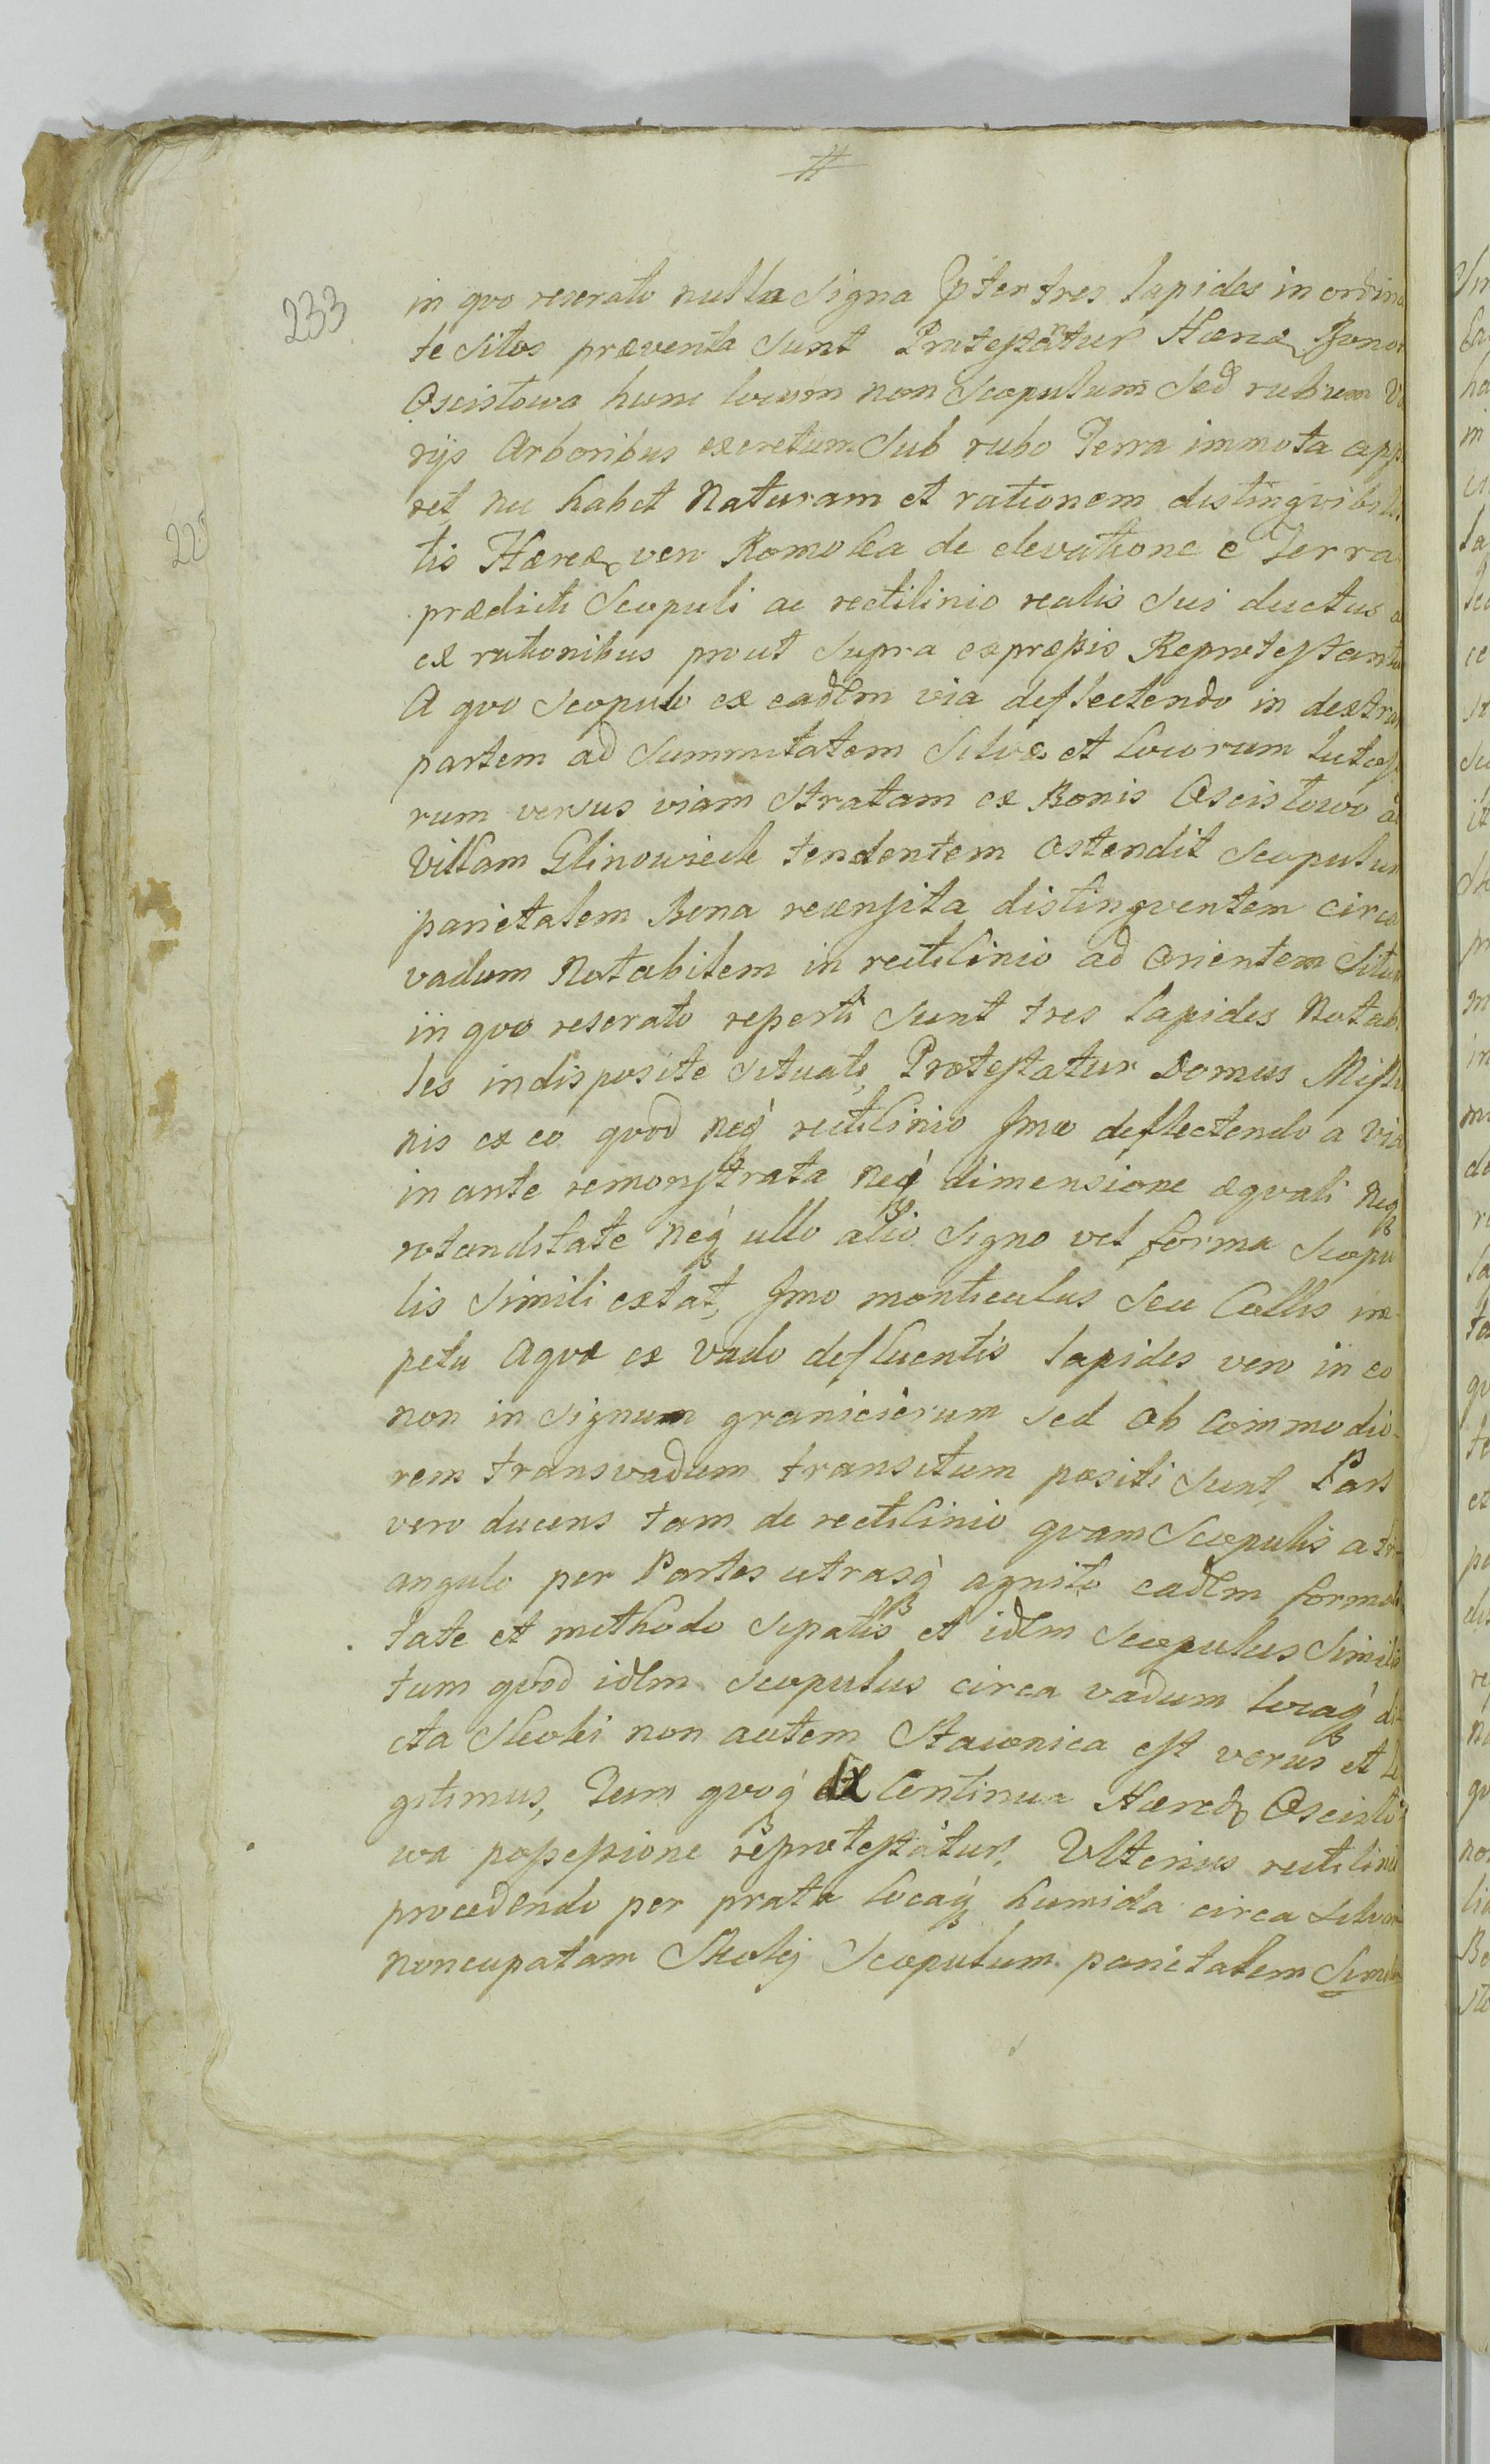 #
233
in qvo reserato nulla signa p̱ter tres lapides in ordina
te sitos præventa sunt Protestantur Hæred Bonor
Oscistowa hunc locum non Scopulum Sed rubum Va
rijs Arboribus excretum Sub rubo Terra immota appa
ret, nec habet Naturam et rationem distingvibili
tis Hæred vero Romoka de elevatione e Terra
prædicti Scopuli ac rectilinio realis sui ductus a
ex rationibus prout supra expræssis Reprotestantur
A qvo Scopulo ex eadem via deflectendo in dextram
partem ad Summitatem Silvæ et locorum lutoso
rum versus viam Stratam ex Bonis Oscistowo ad
Villam Glinowieck tendentem ostendit Scopulum
parietalem Bona recensita distingventem circa
vadum Notabilem in rectilinio ad Orientem Situm
in qvo reserato reperti sunt tres lapides Notabi
les indisposite situati, Protestatur Domus Missio
nis ex eo qvod neq́ꝫ rectilinio Imo deflectendo a via
in ante remonstrata neq́ꝫ dimensione æqvali neqꝫ
rotunditate neq́ꝫ ullo alio signo vel forma Scopu
lis simili extat, Imo monticulus seu Collis im-
petu Aqvæ ex vado defluentis lapides vero in eo
non in signum granicierum sed ob commodio-
rem transvadum transitum positi sunt, Pars
vero ducens tam de rectilinio qvam Scopulis a tri-
angulo per Partes utrasq́ꝫ agnito eadem formali
tate et methodo sipatis et idem Scopulus simili
tum qvod idem Scopulus circa vadum locaq́ꝫ di-
cta Skoki non autem Stawnica est verus et le
gitimus, Tum qvoq́ꝫ de Continua Hæred Oscisto
wa possessione reprotestatur, Ulterius rectilinio
procedendo per prata locaq́ꝫ humida circa silvam
noncupatam Skokij Scopulum parietalem Simile
225